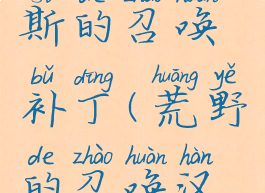 斯的召唤
bǔ dīng huāng yě
补丁(荒野
de zhào huàn hàn
的召唤汉